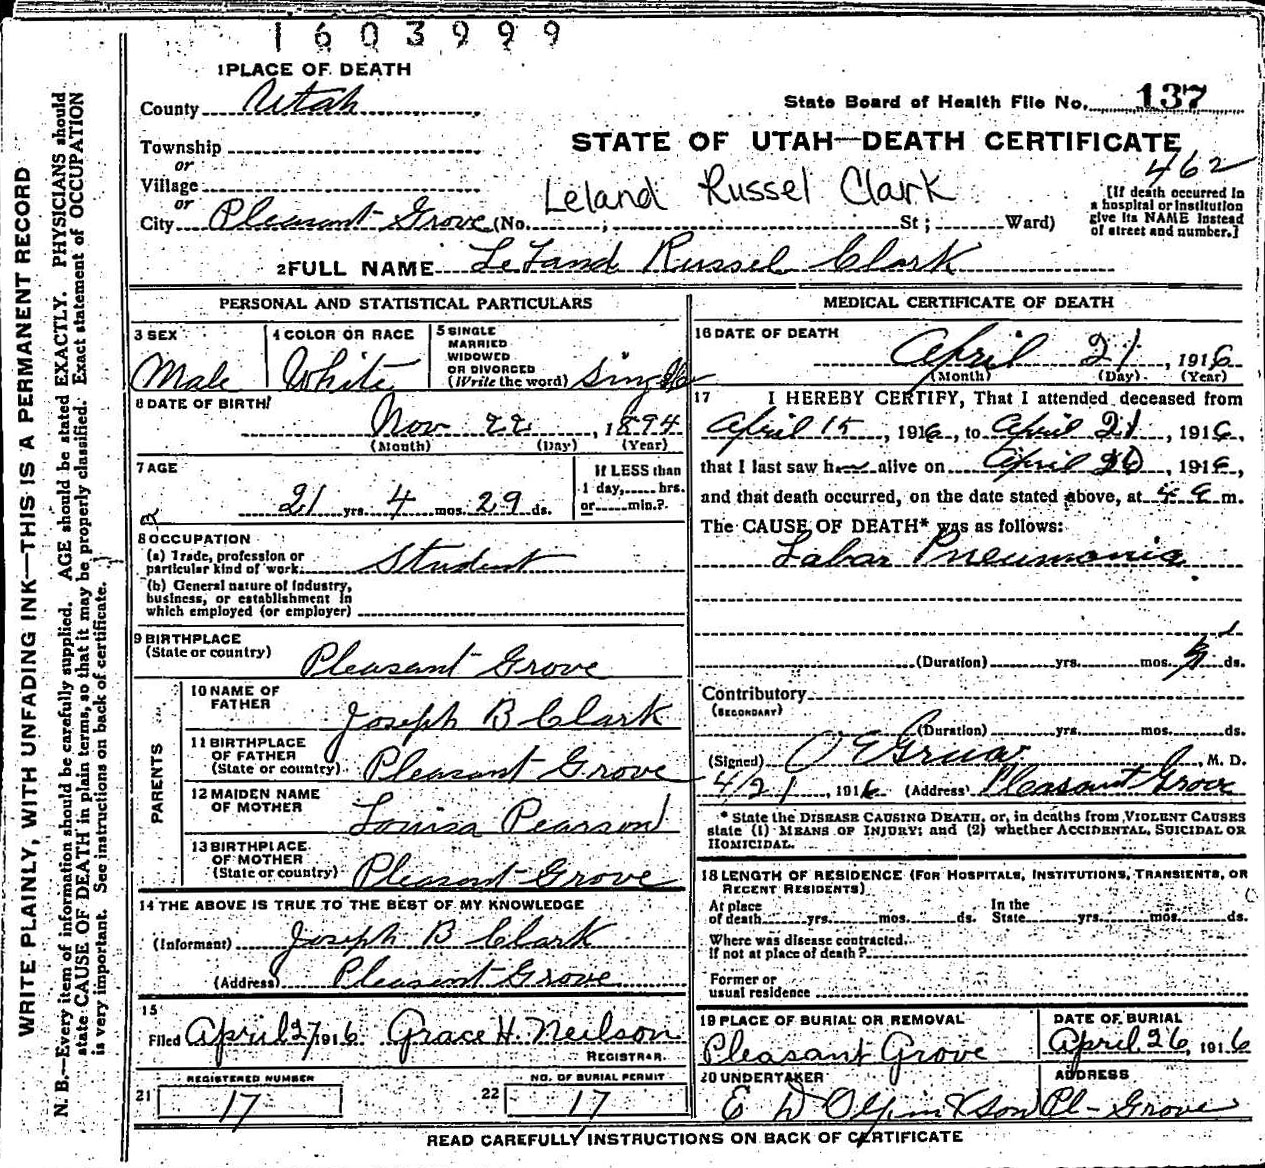 1603999
1 PLACE OF DEATH
County Utah
State Board of Health File No. 137
Township
or
Village
or
City Pleasant Grove (No. ; St ; Ward)
STATE OF UTAH—DEATH CERTIFICATE
462
Leland Russel Clark
[If death occurred in
a hospital or institution
give its NAME instead
of street and number.]
2 FULL NAME LeLand Russel Clark
PERSONAL AND STATISTICAL PARTICULARS
3 SEX
Male
4 COLOR OR RACE
White
5 SINGLE
MARRIED
WIDOWED
OR DIVORCED
(Write the word) Single
6 DATE OF BIRTH
Nov 22, 1894
(Month) (Day) (Year)
7 AGE
21 yrs. 4 mos. 29 ds.
If LESS than
1 day, hrs.
or min.?
8 OCCUPATION
(a) Trade, profession or
particular kind of work Student
(b) General nature of industry,
business, or establishment in
which employed (or employer)
9 BIRTHPLACE
(State or country) Pleasant Grove
PARENTS
10 NAME OF
FATHER Joseph B Clark
11 BIRTHPLACE
OF FATHER
(State or country) Pleasant Grove
12 MAIDEN NAME
OF MOTHER Louisa Pearson
13 BIRTHPLACE
OF MOTHER
(State or country) Pleasant Grove
14 THE ABOVE IS TRUE TO THE BEST OF MY KNOWLEDGE
(Informant) Joseph B Clark
(Address) Pleasant Grove
15
Filed April 27 1916 Grace H. Neilson
REGISTRAR
21 REGISTERED NUMBER
17
22 NO. OF BURIAL PERMIT
17
MEDICAL CERTIFICATE OF DEATH
16 DATE OF DEATH
April 21, 1916
(Month) (Day) (Year)
17 I HEREBY CERTIFY, That I attended deceased from
April 15, 1916, to April 21, 1916,
that I last saw h alive on April 20, 1916,
and that death occurred, on the date stated above, at 4 a m.
The CAUSE OF DEATH* was as follows:
Lobar Pneumonia
(Duration) yrs. mos. ds.
Contributory
(SECONDARY)
(Duration) yrs. mos. ds.
(Signed) O E Grua, M. D.
4/21, 1916 (Address) Pleasant Grove
* State the DISEASE CAUSING DEATH, or, in deaths from VIOLENT CAUSES
state (1) MEANS OF INJURY; and (2) whether ACCIDENTAL, SUICIDAL OR
HOMICIDAL.
18 LENGTH OF RESIDENCE (FOR HOSPITALS, INSTITUTIONS, TRANSIENTS, OR
RECENT RESIDENTS)
At place
of death yrs. mos. ds.
In the
State yrs. mos. ds.
Where was disease contracted,
If not at place of death?
Former or
usual residence
19 PLACE OF BURIAL OR REMOVAL
Pleasant Grove
DATE OF BURIAL
April 26, 1916
20 UNDERTAKER
E D Olpin & Son
ADDRESS
Pl- Grove
READ CAREFULLY INSTRUCTIONS ON BACK OF CERTIFICATE
WRITE PLAINLY, WITH UNFADING INK—THIS IS A PERMANENT RECORD
N. B.—Every item of information should be carefully supplied. AGE should be stated EXACTLY. PHYSICIANS should
state CAUSE OF DEATH in plain terms, so that it may be properly classified. Exact statement of OCCUPATION
is very important. See instructions on back of certificate.